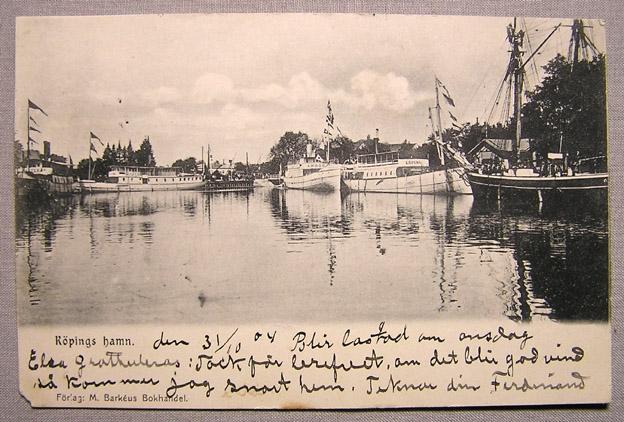 KÖPING
Köpings hamn. den 31/10 04 Blir lastad om onsdag
Elsa gratuleras: Tack för brefvet, om det blir god vind
så kommer jag snart hem. Teknar din Ferdinand
Förlag: M. Barkéus Bokhandel.